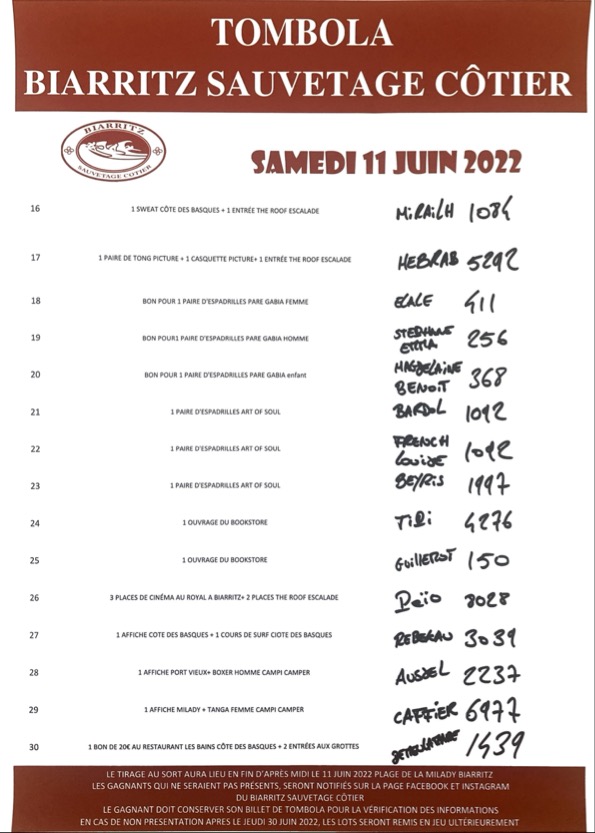 TOMBOLA
BIARRITZ SAUVETAGE CÔTIER
BIARRITZ
SAUVETAGE COTIER
SAMEDI 11 JUIN 2022
16 1 SWEAT CÔTE DES BASQUES + 1 ENTRÉE THE ROOF ESCALADE MiRAiLH 1084
17 1 PAIRE DE TONG PICTURE + 1 CASQUETTE PICTURE+ 1 ENTRÉE THE ROOF ESCALADE HEBRAB 5292
18 BON POUR 1 PAIRE D'ESPADRILLES PARE GABIA FEMME 411
19 BON POUR1 PAIRE D'ESPADRILLES PARE GABIA HOMME STEPHANE 256
20 BON POUR 1 PAIRE D'ESPADRILLES PARE GABIA enfant MAGDELAINE
BENOIT 368
21 1 PAIRE D'ESPADRILLES ART OF SOUL BARDOL 1092
22 1 PAIRE D'ESPADRILLES ART OF SOUL FRENCH
Louise 1092
23 1 PAIRE D'ESPADRILLES ART OF SOUL BEYRIS 1997
24 1 OUVRAGE DU BOOKSTORE 4276
25 1 OUVRAGE DU BOOKSTORE GUILLEROT 150
26 3 PLACES DE CINÉMA AU ROYAL A BIARRITZ+ 2 PLACES THE ROOF ESCALADE Peïo 8028
27 1 AFFICHE COTE DES BASQUES + 1 COURS DE SURF CIOTE DES BASQUES 3039
28 1 AFFICHE PORT VIEUX+ BOXER HOMME CAMPI CAMPER 2237
29 1 AFFICHE MILADY + TANGA FEMME CAMPI CAMPER 6977
30 1 BON DE 20€ AU RESTAURANT LES BAINS CÔTE DES BASQUES + 2 ENTRÉES AUX GROTTES 1439
LE TIRAGE AU SORT AURA LIEU EN FIN D'APRÈS MIDI LE 11 JUIN 2022 PLAGE DE LA MILADY BIARRITZ
LES GAGNANTS QUI NE SERAIENT PAS PRÉSENTS, SERONT NOTIFIÉS SUR LA PAGE FACEBOOK ET INSTAGRAM
DU BIARRITZ SAUVETAGE CÔTIER
LE GAGNANT DOIT CONSERVER SON BILLET DE TOMBOLA POUR LA VÉRIFICATION DES INFORMATIONS
EN CAS DE NON PRESENTATION APRES LE JEUDI 30 JUIN 2022, LES LOTS SERONT REMIS EN JEU ULTÉRIEUREMENT